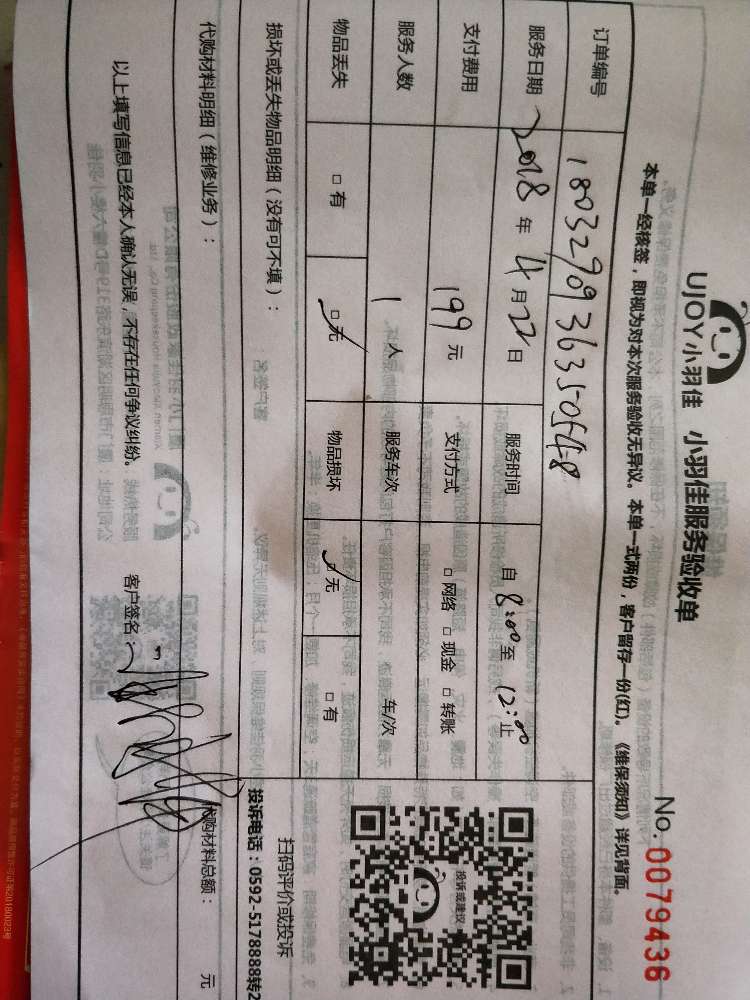 UJOY小羽佳 小羽佳服务验收单
No. 0079436
本单一经核签，即视为对本次服务验收无异议。本单一式两份，客户留存一份(红)。《维保须知》详见背面。
订单编号 1803290936350548
服务日期 2018年4月22日 服务时间 自8:00至12:00止
支付费用 199元 支付方式 □网络 □现金 □转账
服务人数 1人 服务车次 车/次
物品丢失 □有 □无 物品损坏 □无 □有
损坏或丢失物品明细（没有可不填）：
代购材料明细（维修业务）：
代购材料总额： 元
以上填写信息已经本人确认无误，不存在任何争议纠纷。 客户签名：
投诉或建议
扫码评价或投诉
投诉电话：0592-5178888转2